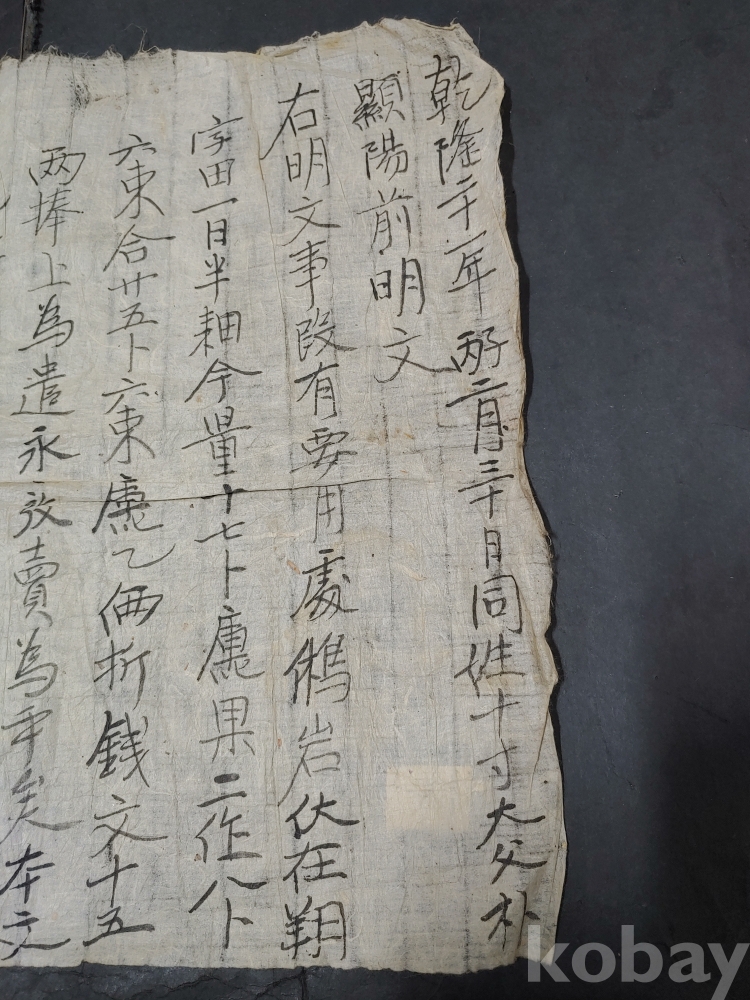 乾隆二十一年丙子二月三十日同姓十寸大父朴
顯陽前明文
右明文事段有要用處鵂岩伏在翔
字田一日半耕今量十七卜庫果二作八卜
六束合廿五卜六束庫乙価折錢文十五
两捧上為遣永永放賣為乎矣本文
kobay